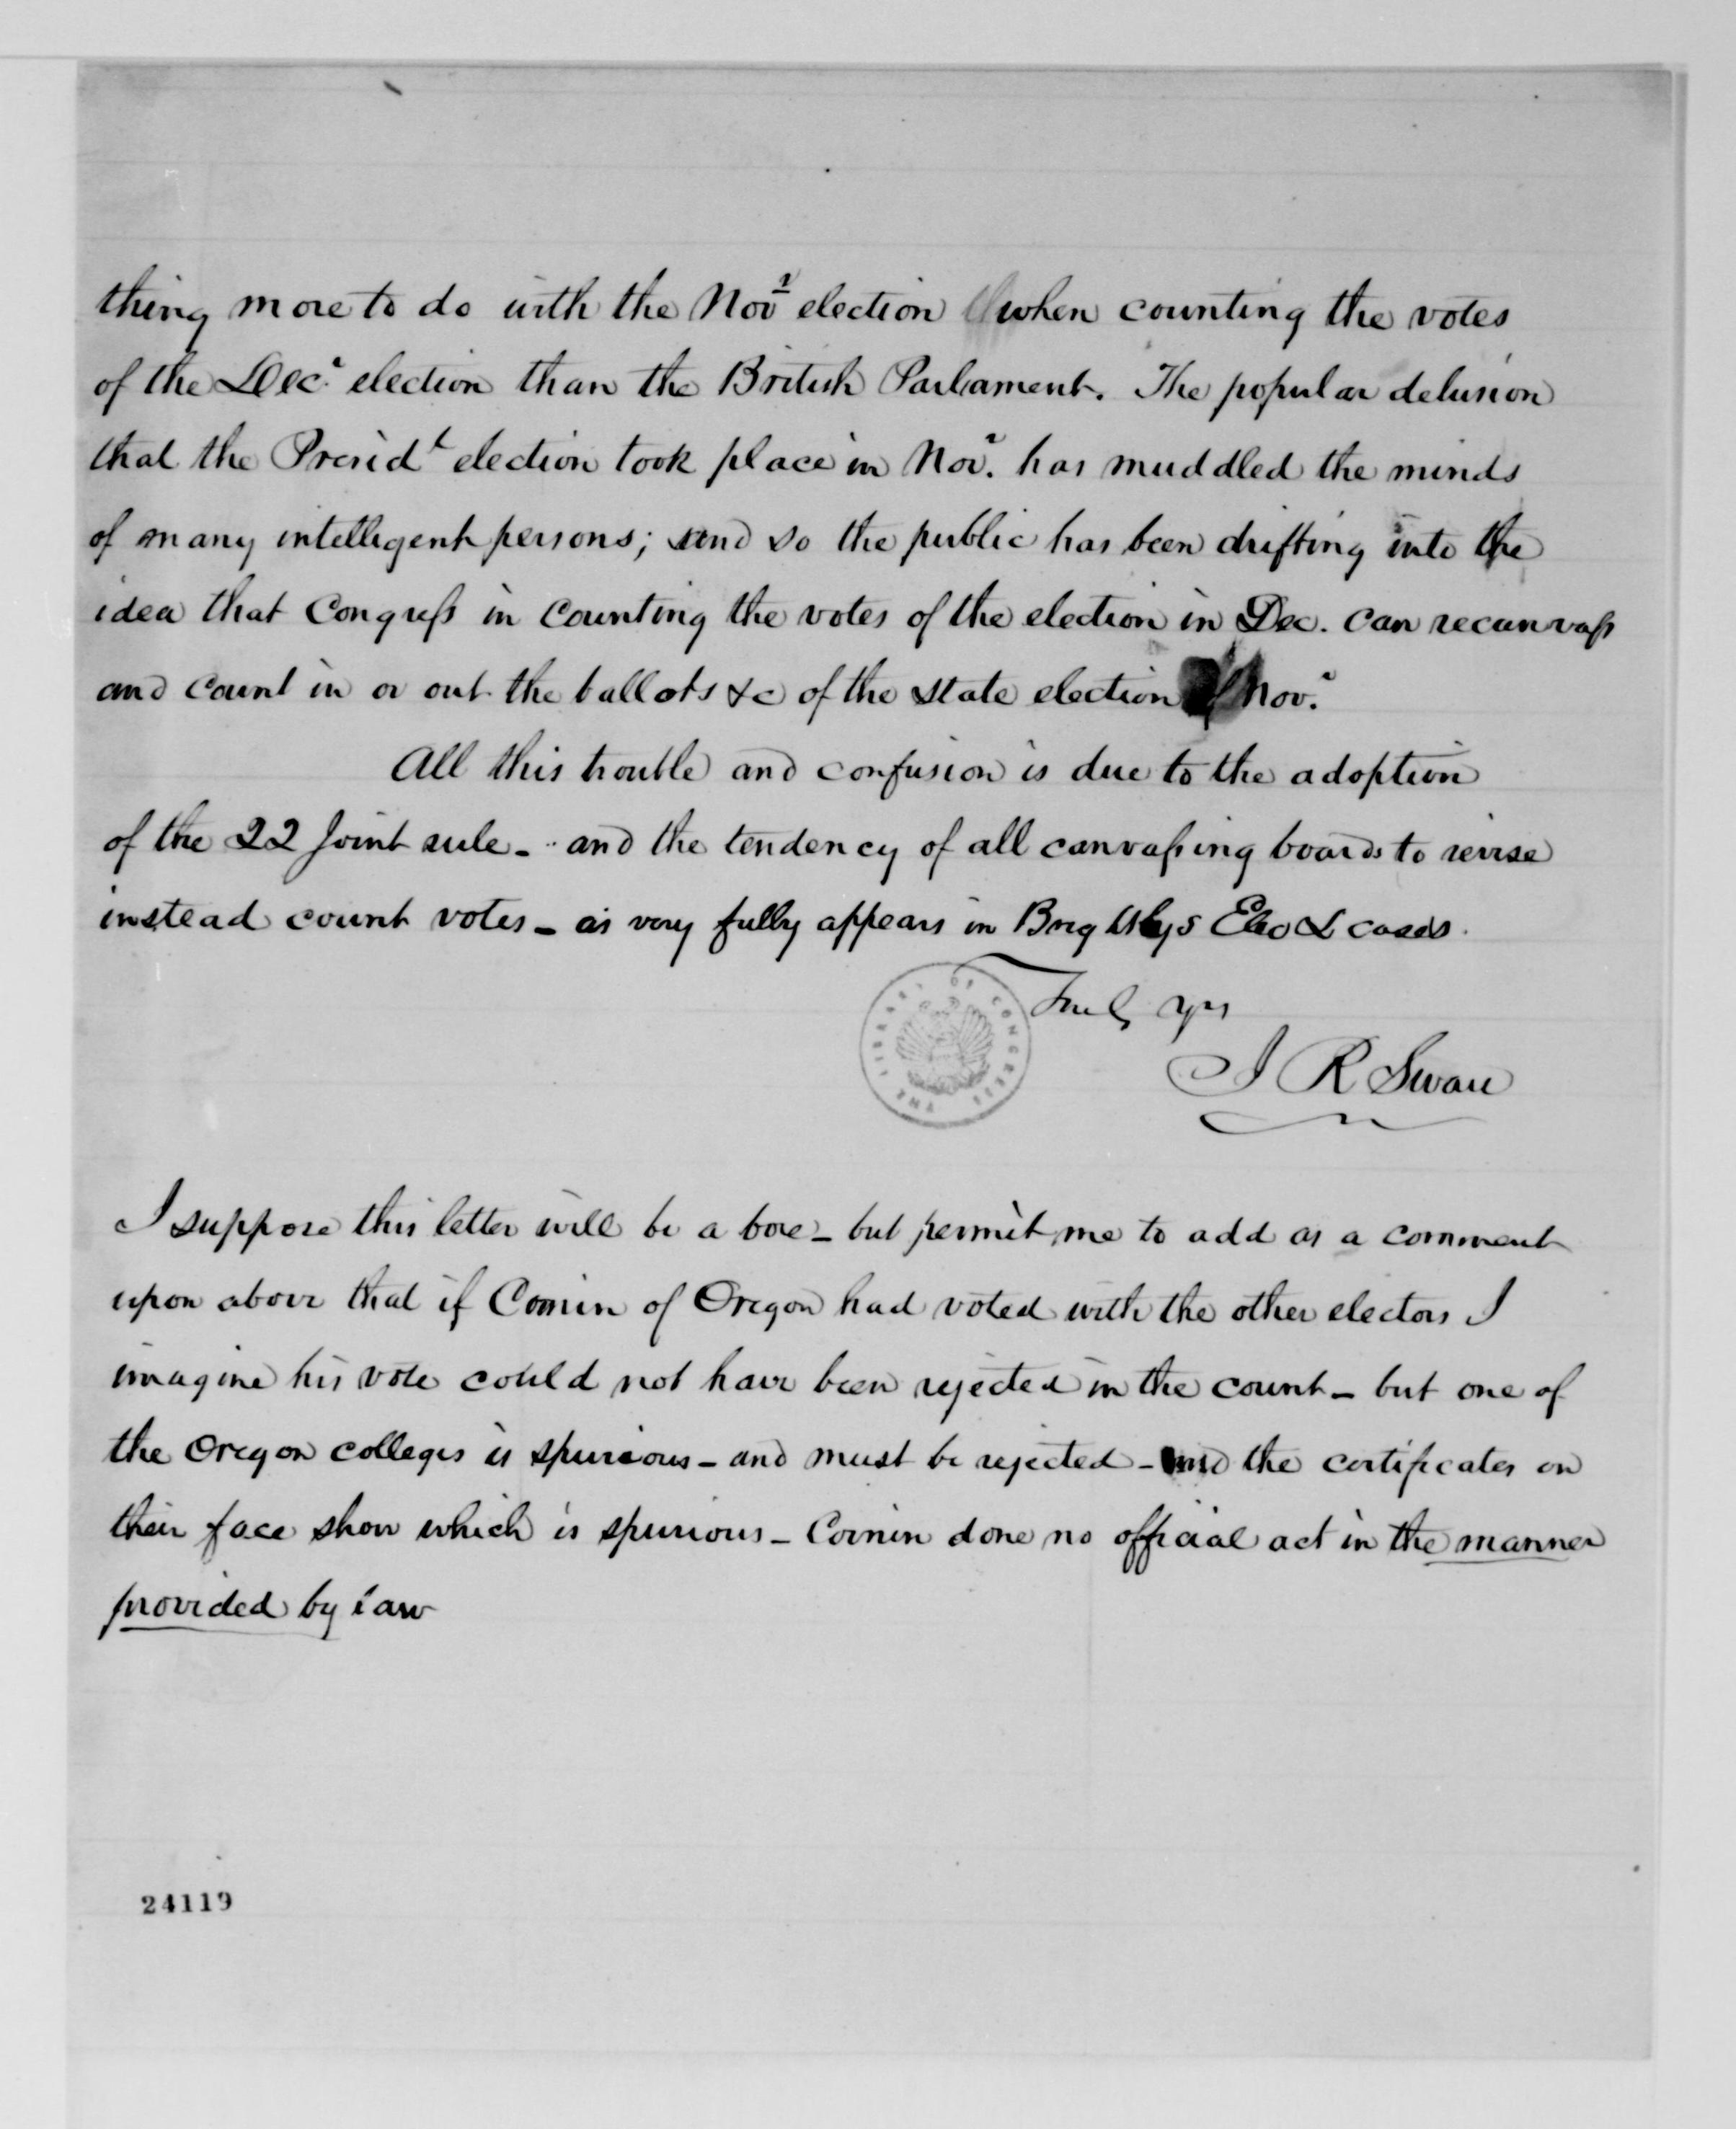 thing more to do with the Novr election when counting the votes
of the Decr election than the British Parliament. The popular delusion
that the Presidt election took place in Novr. has muddled the minds
of many intelligent persons; and so the public has been drifting into the
idea that Congress in counting the votes of the election in Dec. can recanvass
and count in or out the ballots &c of the state election of Novr.
All this trouble and confusion is due to the adoption
of the 22 Joint rule - and the tendency of all canvassing boards to revise
instead count votes - as very fully appears in Brightlys Elec cases.
Truly yrs
J R Swan
THE LIBRARY OF CONGRESS
I suppose this letter will be a bore - but permit me to add as a comment
upon above that if Cronin of Oregon had voted with the other electors I
imagine his vote could not have been rejected in the count - but one of
the Oregon colleges is spurious - and must be rejected - and the certificates on
their face show which is spurious - Cronin done no official act in the manner
provided by law
24119